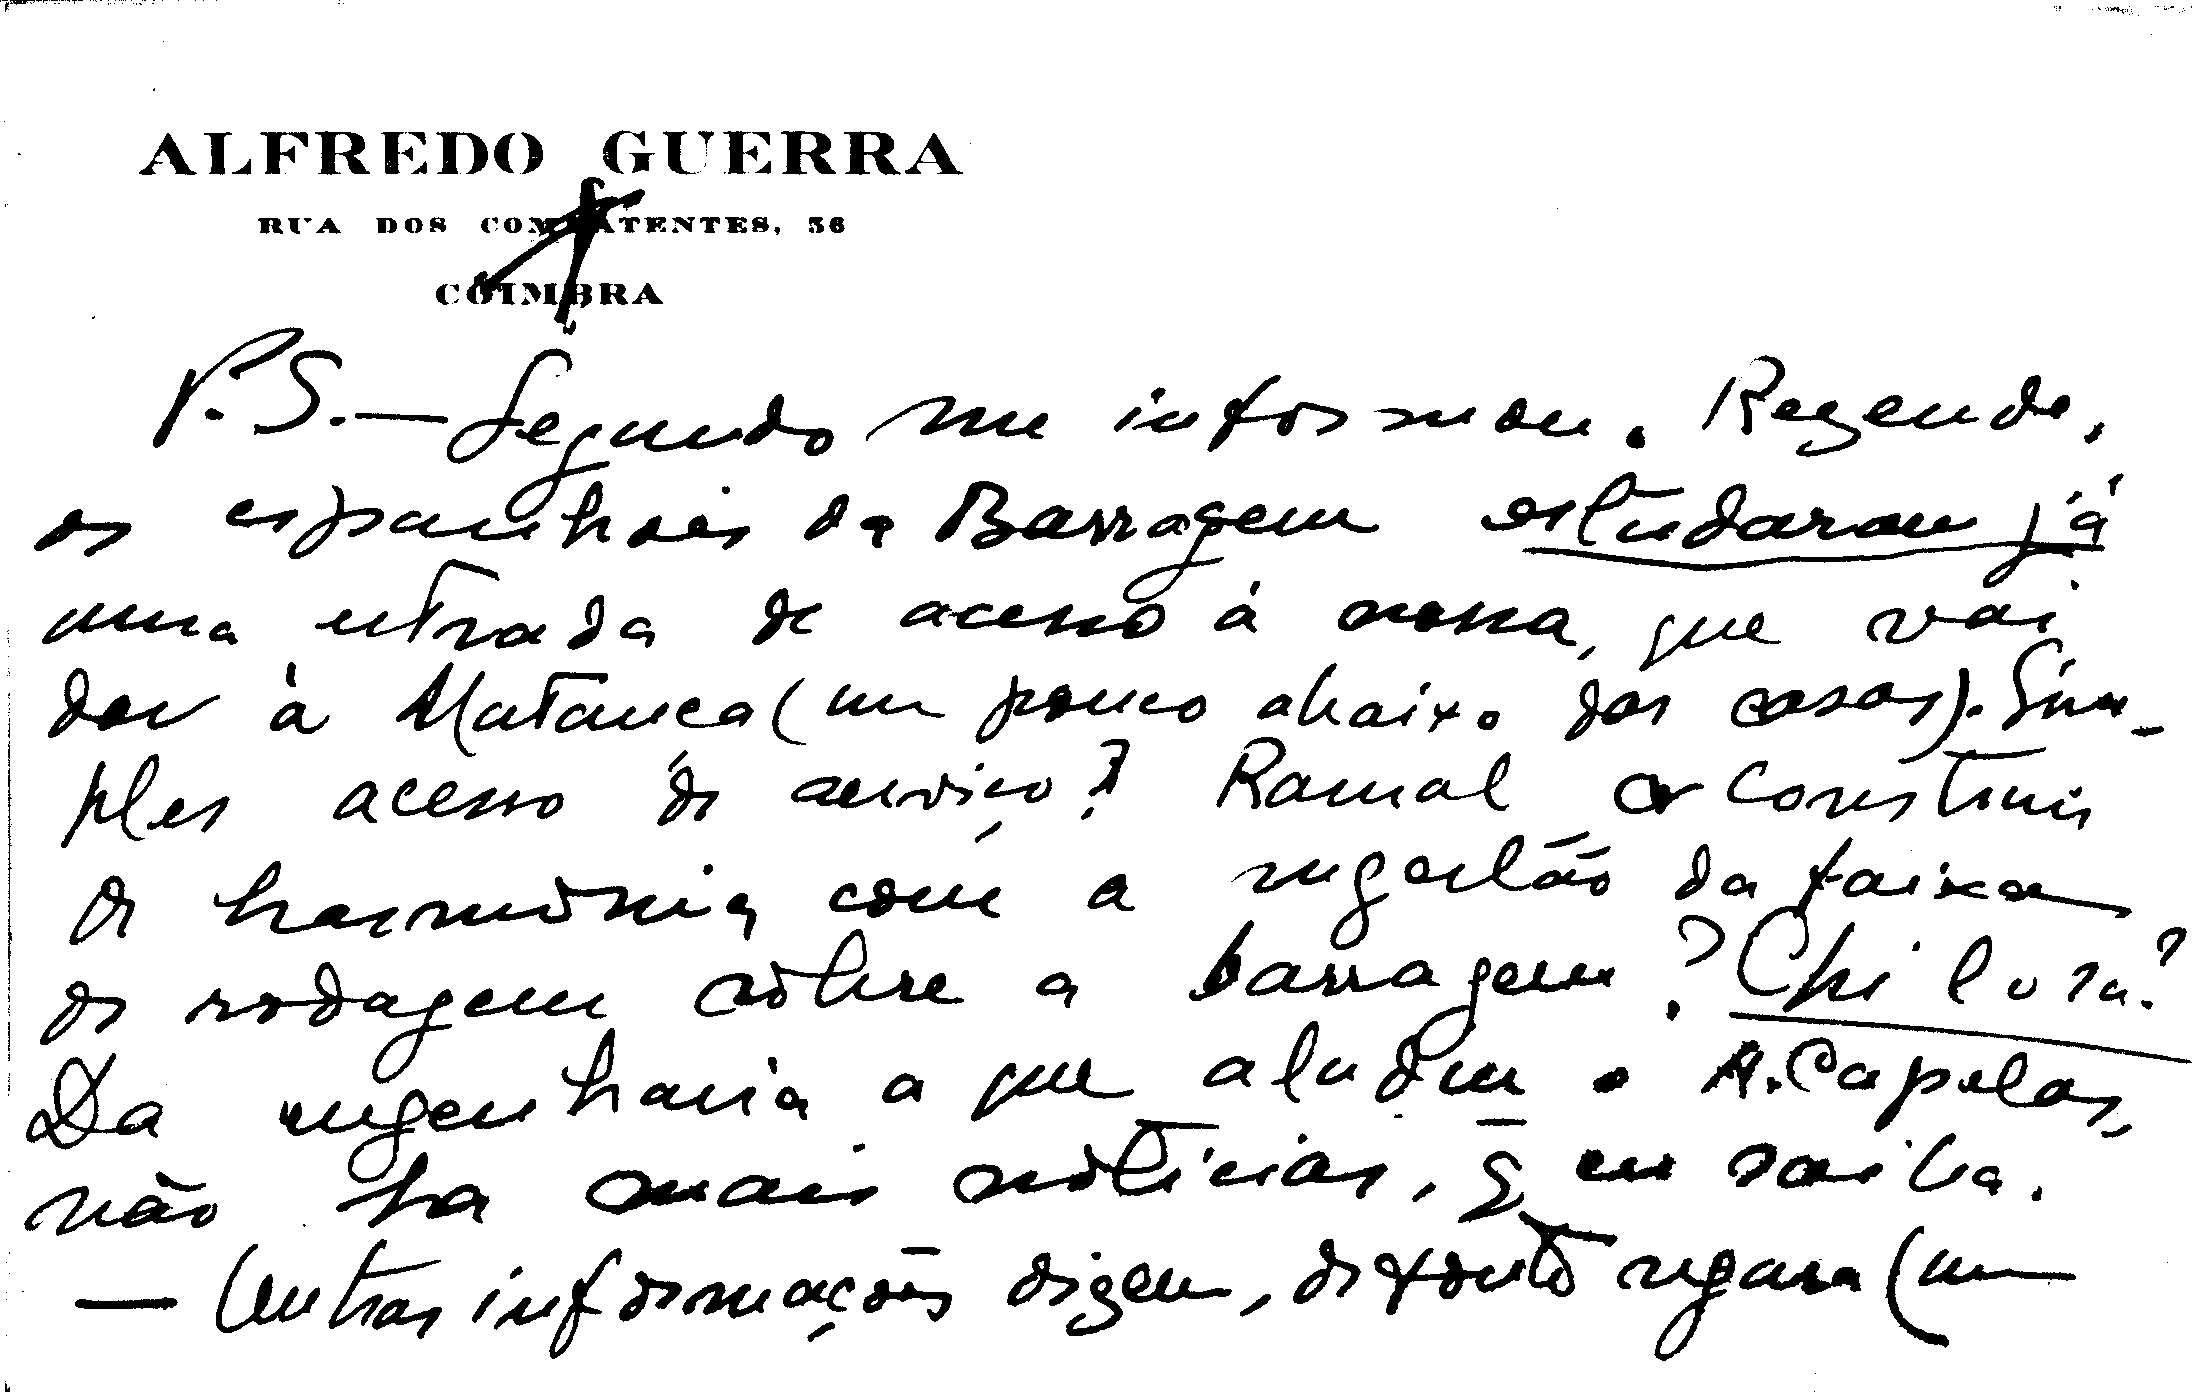 ALFREDO GUERRA
RUA DOS COMBATENTES, 56
COIMBRA
P.S.— Segundo me informou o Rezende,
os espanhois da Barragem estudaram já
uma estrada de acesso à nossa, que vai
dar à Matança (um pouco abaixo das casas). Sim-
ples acesso de serviço? Ramal a construir
de harmònia com a sugestão da faixa
de rodagem sôbre a barragem? Chi lo sa?
Da engenharia a que aludiu o A. Capelas,
não ha mais notícias, q̄ eu saiba.
— Outras informações dizem, de fonte segura (um